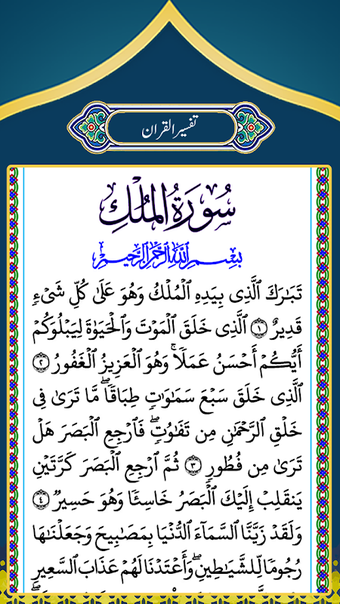 تفسیر القرآن
سُورَةُ الْمُلْكِ
بِسْمِ اللَّهِ الرَّحْمَٰنِ الرَّحِيمِ
تَبَارَكَ ٱلَّذِي بِيَدِهِ ٱلْمُلْكُ وَهُوَ عَلَىٰ كُلِّ شَيْءٍ
قَدِيرٌ ١ ٱلَّذِي خَلَقَ ٱلْمَوْتَ وَٱلْحَيَوٰةَ لِيَبْلُوَكُمْ
أَيُّكُمْ أَحْسَنُ عَمَلًا ۚ وَهُوَ ٱلْعَزِيزُ ٱلْغَفُورُ ٢
ٱلَّذِي خَلَقَ سَبْعَ سَمَٰوَٰتٍ طِبَاقًا ۖ مَّا تَرَىٰ فِي
خَلْقِ ٱلرَّحْمَٰنِ مِن تَفَٰوُتٍ ۖ فَٱرْجِعِ ٱلْبَصَرَ هَلْ
تَرَىٰ مِن فُطُورٍ ٣ ثُمَّ ٱرْجِعِ ٱلْبَصَرَ كَرَّتَيْنِ
يَنقَلِبْ إِلَيْكَ ٱلْبَصَرُ خَاسِئًا وَهُوَ حَسِيرٌ ٤
وَلَقَدْ زَيَّنَّا ٱلسَّمَآءَ ٱلدُّنْيَا بِمَصَٰبِيحَ وَجَعَلْنَٰهَا
رُجُومًا لِّلشَّيَٰطِينِ ۖ وَأَعْتَدْنَا لَهُمْ عَذَابَ ٱلسَّعِيرِ